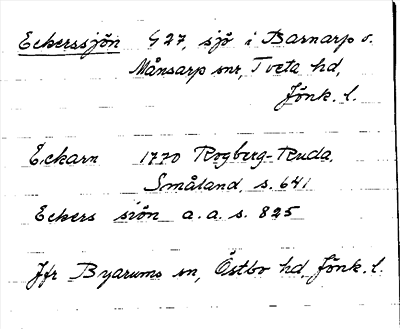 Eckerssjön 427, sjö i Barnarp o.
Månsarp snr, Tveta hd,
Jönk. l.
Eckarn 1770 Rogberg-Ruda,
Småland, s. 641
Eckers siön a.a. s. 825
Jfr Byarums sn, Östbo hd, Jönk. l.